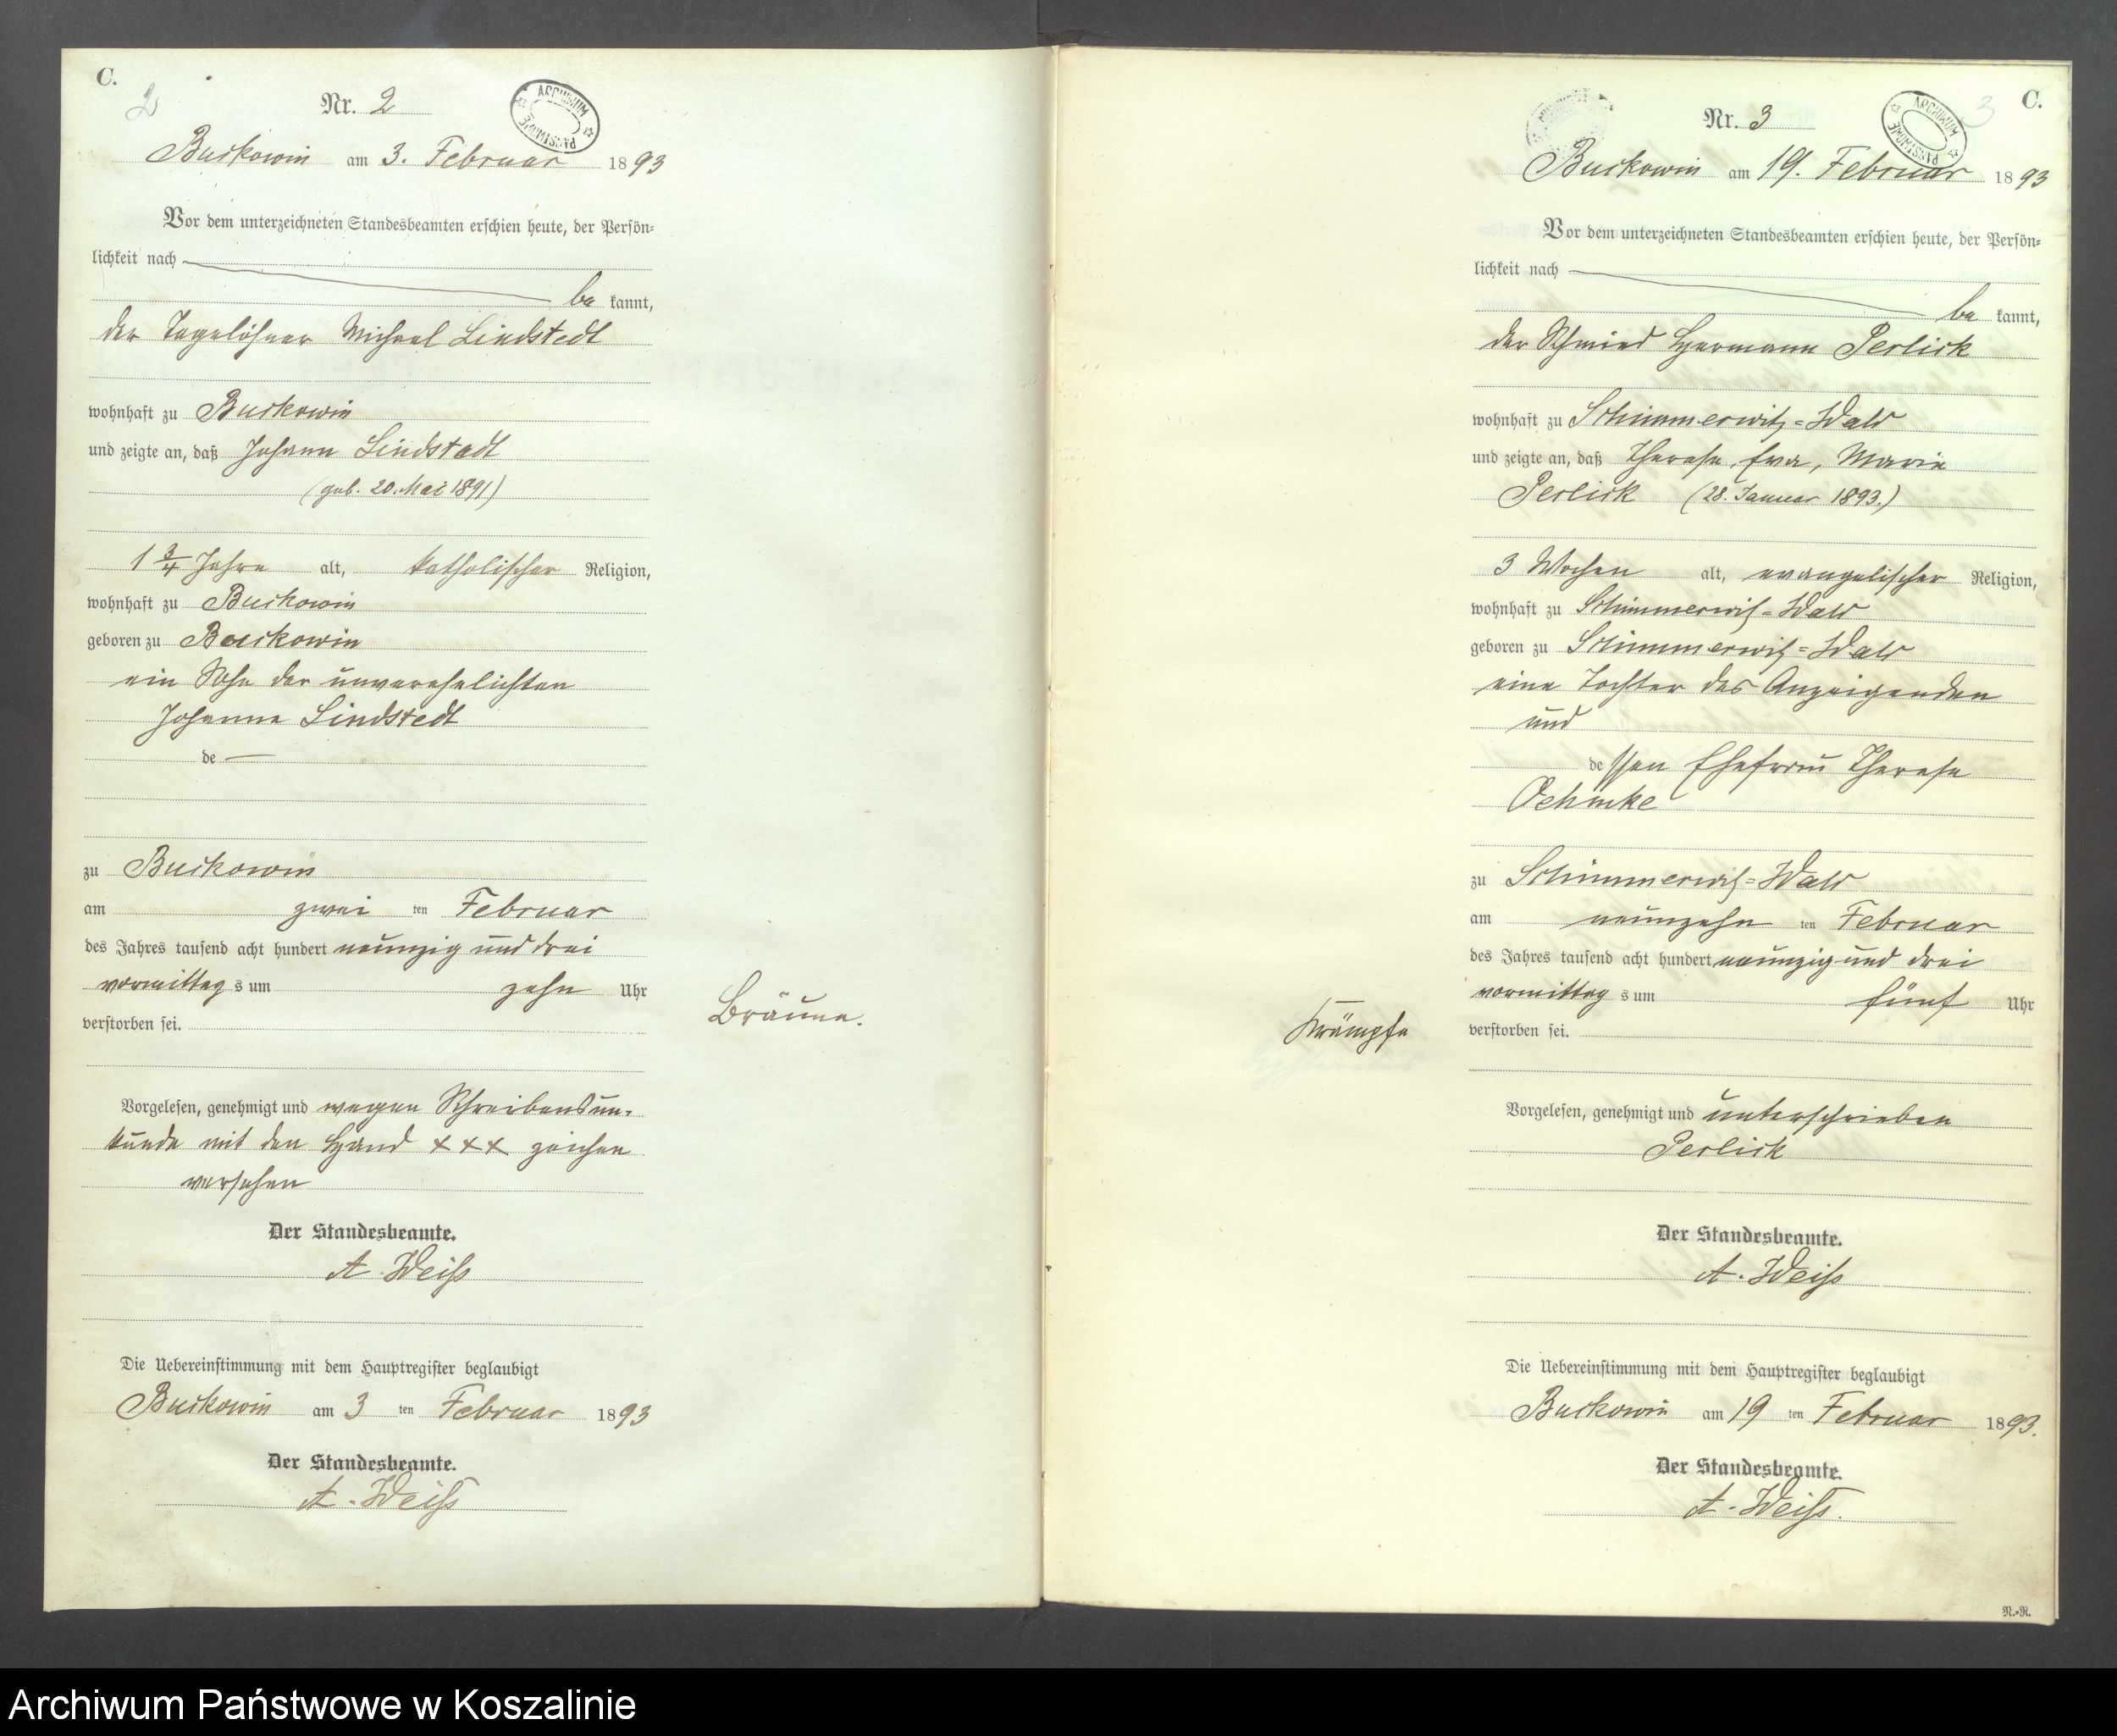 C.
2
Nr. 2
ARCHIWUM PAŃSTWOWE
Buckowin am 3. Februar 1893
Vor dem unterzeichneten Standesbeamten erschien heute, der Persön=
lichkeit nach
be kannt,
der Tagelöhner Michael Lindstedt
wohnhaft zu Buckowin
und zeigte an, daß Johann Lindstedt
(geb. 20. Mai 1891)
1 3/4 Jahre alt, katholischer Religion,
wohnhaft zu Buckowin
geboren zu Buckowin
ein Sohn der unverehelichten
Johanna Lindstedt
de
zu Buckowin
am zwei ten Februar
des Jahres tausend acht hundert neunzig und drei
vormittag s um zehn Uhr
verstorben sei.
Bräune.
Vorgelesen, genehmigt und wegen Schreibensun-
kunde mit den Hand xxx zeichen
versehen
Der Standesbeamte.
A. Weiß
Die Uebereinstimmung mit dem Hauptregister beglaubigt
Buckowin am 3 ten Februar 1893
Der Standesbeamte.
A. Weiß
3 C.
Nr. 3
ARCHIWUM PAŃSTWOWE
Buckowin am 19. Februar 1893
Vor dem unterzeichneten Standesbeamten erschien heute, der Persön=
lichkeit nach
be kannt,
der Schmied Hermann Perlick
wohnhaft zu Schimmerwitz=Wald
und zeigte an, daß Therese, Eva, Marie
Perlick (28. Januar 1893.)
3 Wochen alt, evangelischer Religion,
wohnhaft zu Schimmerwitz=Wald
geboren zu Schimmerwitz=Wald
eine Tochter des Anzeigenden
und
dessen Ehefrau Therese
Oehmke
zu Schimmerwitz=Wald
am neunzehn ten Februar
des Jahres tausend acht hundert neunzig und drei
vormittag s um fünf Uhr
verstorben sei.
Krämpfe
Vorgelesen, genehmigt und unterschrieben
Perlick
Der Standesbeamte.
A. Weiß
Die Uebereinstimmung mit dem Hauptregister beglaubigt
Buckowin am 19 ten Februar 1893.
Der Standesbeamte.
A. Weiß.
N.-N.
Archiwum Państwowe w Koszalinie